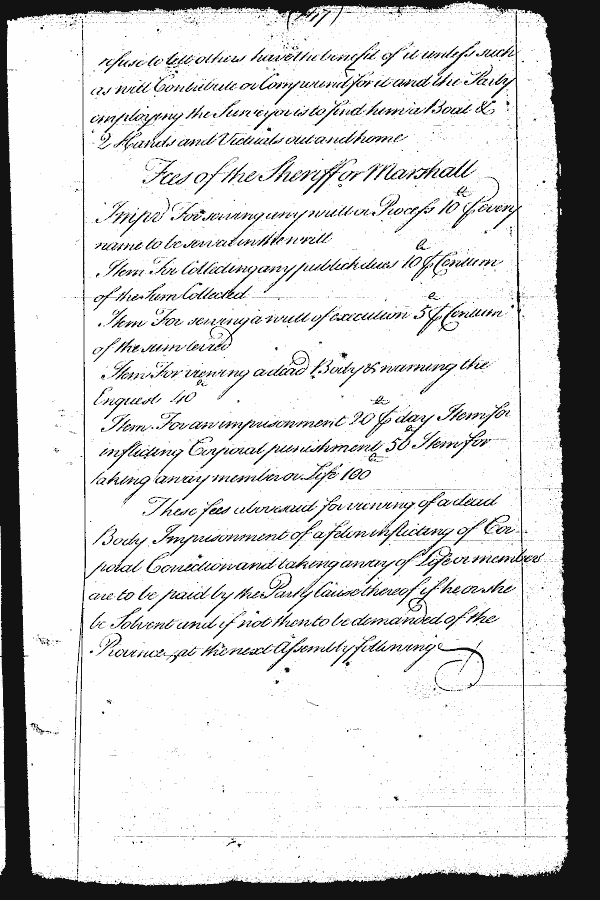 (247)
refuse to lett others have the benefit of it unless such
as will Contribute or Compound for it and the Party
employing the Surveyor is to find him a Boat &
2 Hands and Victuals out and home
Fees of the Sheriff or Marshall
Impr For serving any writt or Process 10 lb ⅌ every
name to be serv'd in the writt
Item For Collecting any publick dues 10 lb ⅌ Centum
of the Sum Collected
Item For serving a writt of execution 5 lb ⅌ Centum
of the sum levied
Item For viewing a dead Body & naming the
Enquest 40 lb
Item For an imprisonment 20 lb ⅌ day Item for
inflicting Corporal punishment 50 lb Item for
taking away member or Life 100 lb
These fees aforesaid for viewing of a dead
Body Imprisonment of a felon inflicting of Cor-
poral Correction and taking away of Life or member
are to be paid by the Party Cause thereof if he or she
be Solvent and if not then to be demanded of the
Province at the next Assembly following